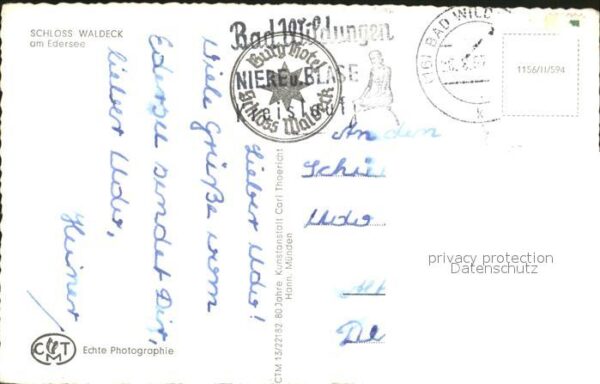 SCHLOSS WALDECK
am Edersee
Lieber Udo!
Viele Grüße vom
Edersee sendet Dir,
lieber Udo,
Heiner
Echte Photographie
C T M
CTM 13/22182 80 Jahre Kunstanstalt Carl Thoericht
Hann. Münden
Bad Wildungen
NIERE u. BLASE
Burg Hotel
Schloss Waldeck
(16) BAD WILD
k
1156/II/594
An den
Schü
Udo
privacy protection
Datenschutz